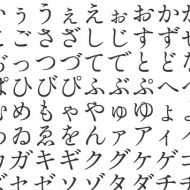 い ぅ う ぇ え ぉ お か が
こ ご さ ざ し じ す ず せ
ぢ っ つ づ て で と ど な
ぱ ひ び ぴ ふ ぶ ぷ へ べ
む め も ゃ や ゅ ゆ ょ よ
わ ゐ ゑ を ん ァ ア ィ イ
カ ガ キ ギ ク グ ケ ゲ コ
ズ セ ゼ ソ ゾ タ ダ チ ヂ